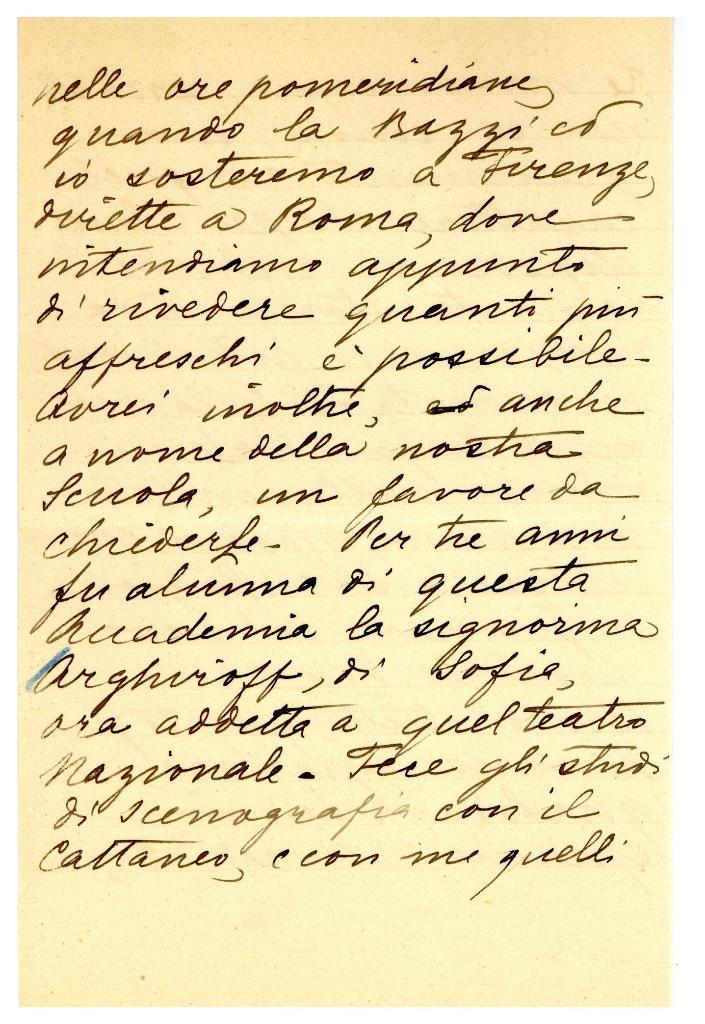 nelle ore pomeridiane,
quando la Bazzi ed
io sosteremo a Firenze,
dirette a Roma, dove
intendiamo appunto
di rivedere quanti più
affreschi è possibile -
Avrei inoltre, ed anche
a nome della nostra
Scuola, un favore da
chiederLe - Per tre anni
fu alunna di questa
Accademia la signorina
Arghiroff, di Sofia,
ora addetta a quel teatro
Nazionale - Fece gli studi
di scenografia con il
Cattaneo, e con me quelli